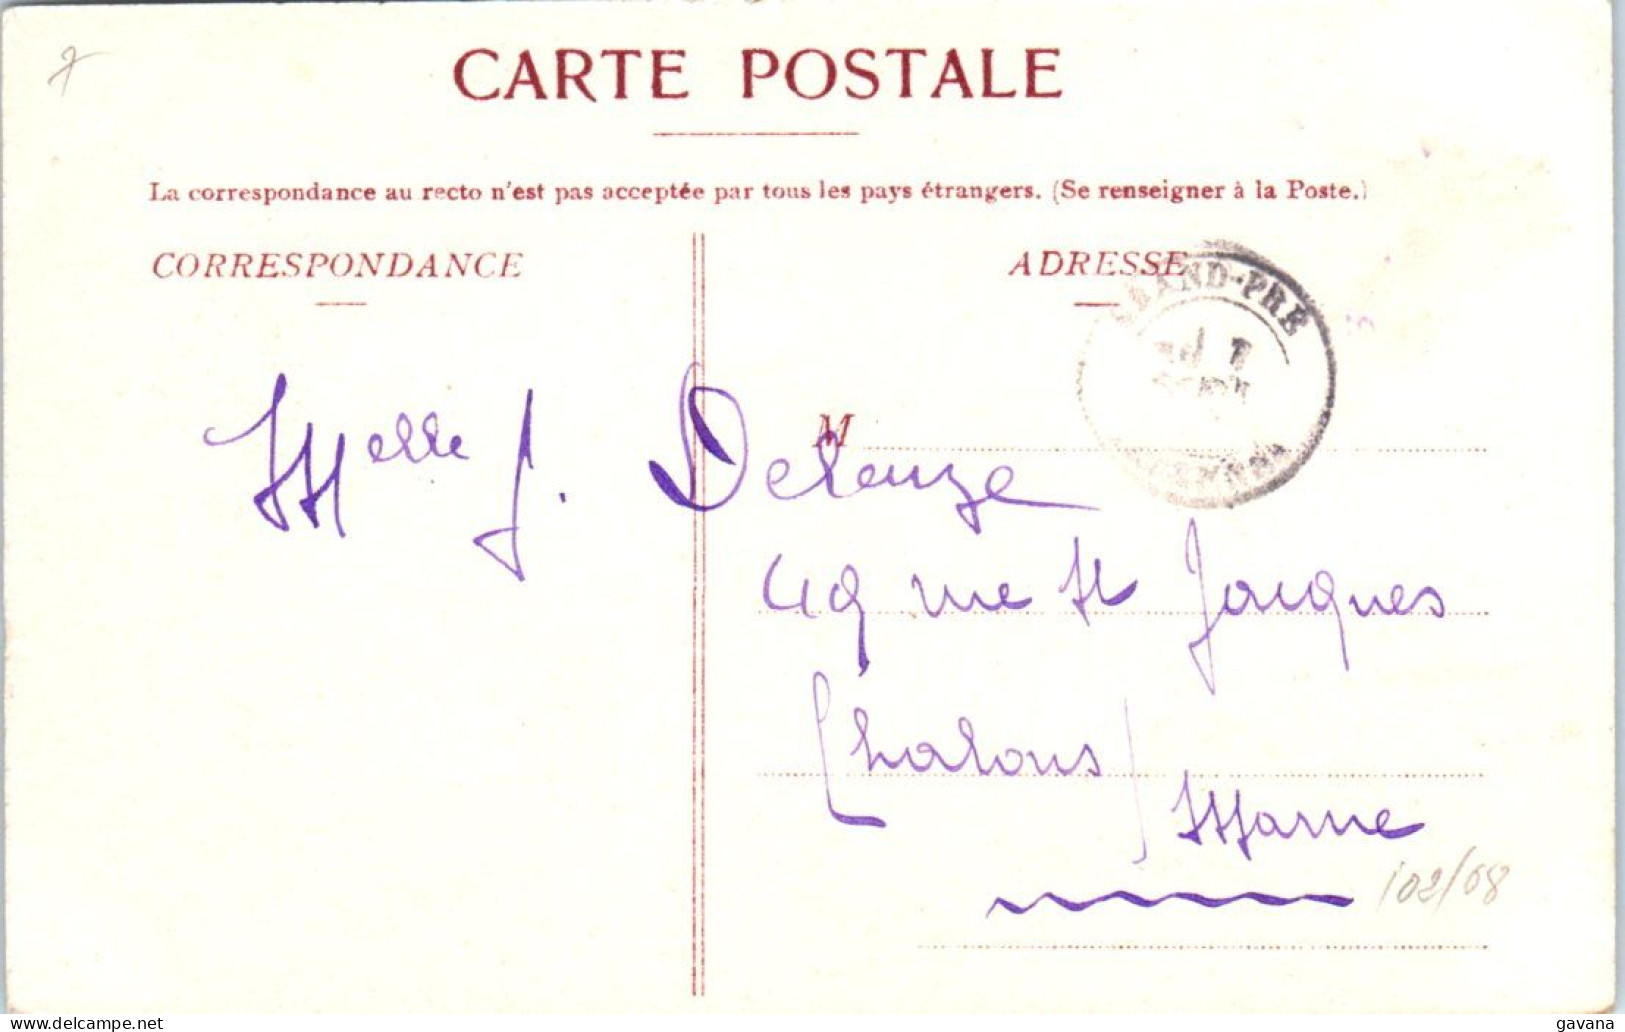 7
CARTE POSTALE
La correspondance au recto n'est pas acceptée par tous les pays étrangers. (Se renseigner à la Poste.)
CORRESPONDANCE
ADRESSE
GRAND-PRÉ
ARDENNES
M
Melle J. Deleuze
49 rue St Jacques
Chalons /
Marne
102/68
www.delcampe.net
gavana